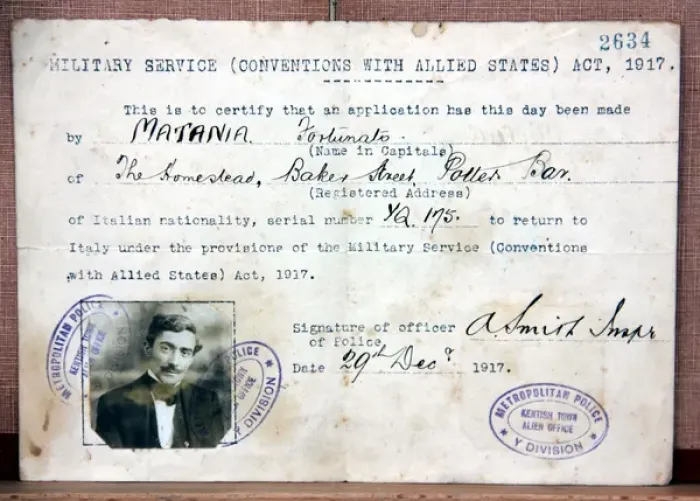 2634
MILITARY SERVICE (CONVENTIONS WITH ALLIED STATES) ACT, 1917.
This is to certify that an application has this day been made
by MATANIA. Fortunato.
(Name in Capitals)
of The Homestead, Baker Street, Potters Bar.
(Registered Address)
of Italian nationality, serial number YQ. 175. to return to
Italy under the provisions of the Military Service (Conventions
with Allied States) Act, 1917.
Signature of officer A. Smith Inspr
of Police,
Date 29th Decr 1917.
METROPOLITAN POLICE
KENTISH TOWN
ALIEN OFFICE
POLICE
TOWN
OFFICE
Y DIVISION
METROPOLITAN POLICE
KENTISH TOWN
ALIEN OFFICE
Y DIVISION